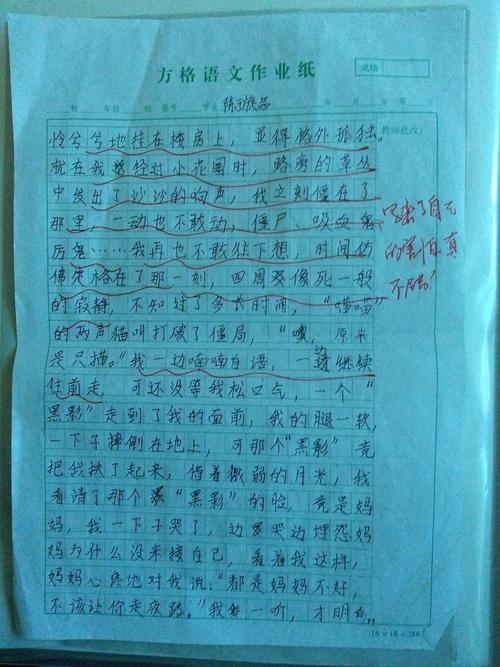 方格语文作业纸
成绩
校 年级 班 座号 学生 陈 年 月 日 第 页
教师批改:
怜兮兮地挂在楼房上，显得格外孤独。
就在我经过小花园时，路旁的草丛
中发出了沙沙的响声，我立刻僵在了
那里，一动也不敢动，僵尸、吸血鬼、
厉鬼……我再也不敢往下想，时间仿
佛定格在了那一刻，四周像死一般
的寂静，不知过了多长时间，“喵喵”
的两声猫叫打破了僵局，“噢，原来
是只猫。”我一边喃喃自语，一边继续
往前走，可还没等我松口气，一个“
黑影”走到了我的面前，我的腿一软，
一下子摔倒在地上，可那个“黑影”竟
把我扶了起来，借着微弱的月光，我
看清了那个“黑影”的脸，竟是妈
妈，我一下子哭了，边哭边埋怨妈
妈为什么没来接自己，看着我这样，
妈妈心疼地对我说：“都是妈妈不好，
不该让你走夜路。”我一听，才明白，
写出了自己
的害怕，真
不错！
16×18=288